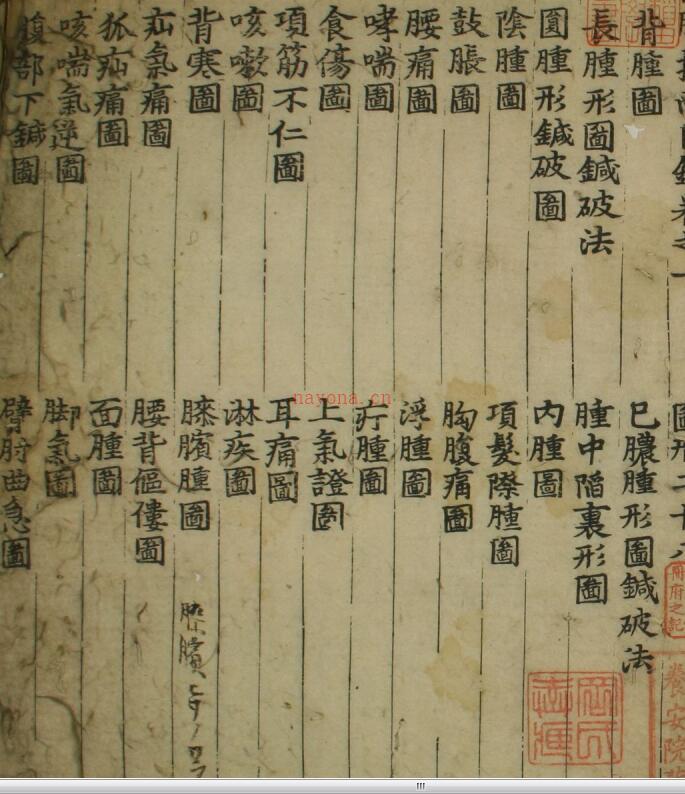 卷之一
背腫圖 已膿腫形圖鍼破法
長腫形圖鍼破法 腫中陷裏形圖
圓腫形鍼破圖 內腫圖
陰腫圖 項髮際腫圖
鼓脹圖 胸腹痛圖
腰痛圖 浮腫圖
哮喘圖 疔腫圖
食傷圖 上氣證圖
項筋不仁圖 耳痛圖
咳嗽圖 淋疾圖
背寒圖 膝臏腫圖
疝氣痛圖 腰背傴僂圖
狐疝痛圖 面腫圖
咳喘氣逆圖 脚氣圖
腹部下鍼圖 臂肘曲急圖
養安院
nayona.cn